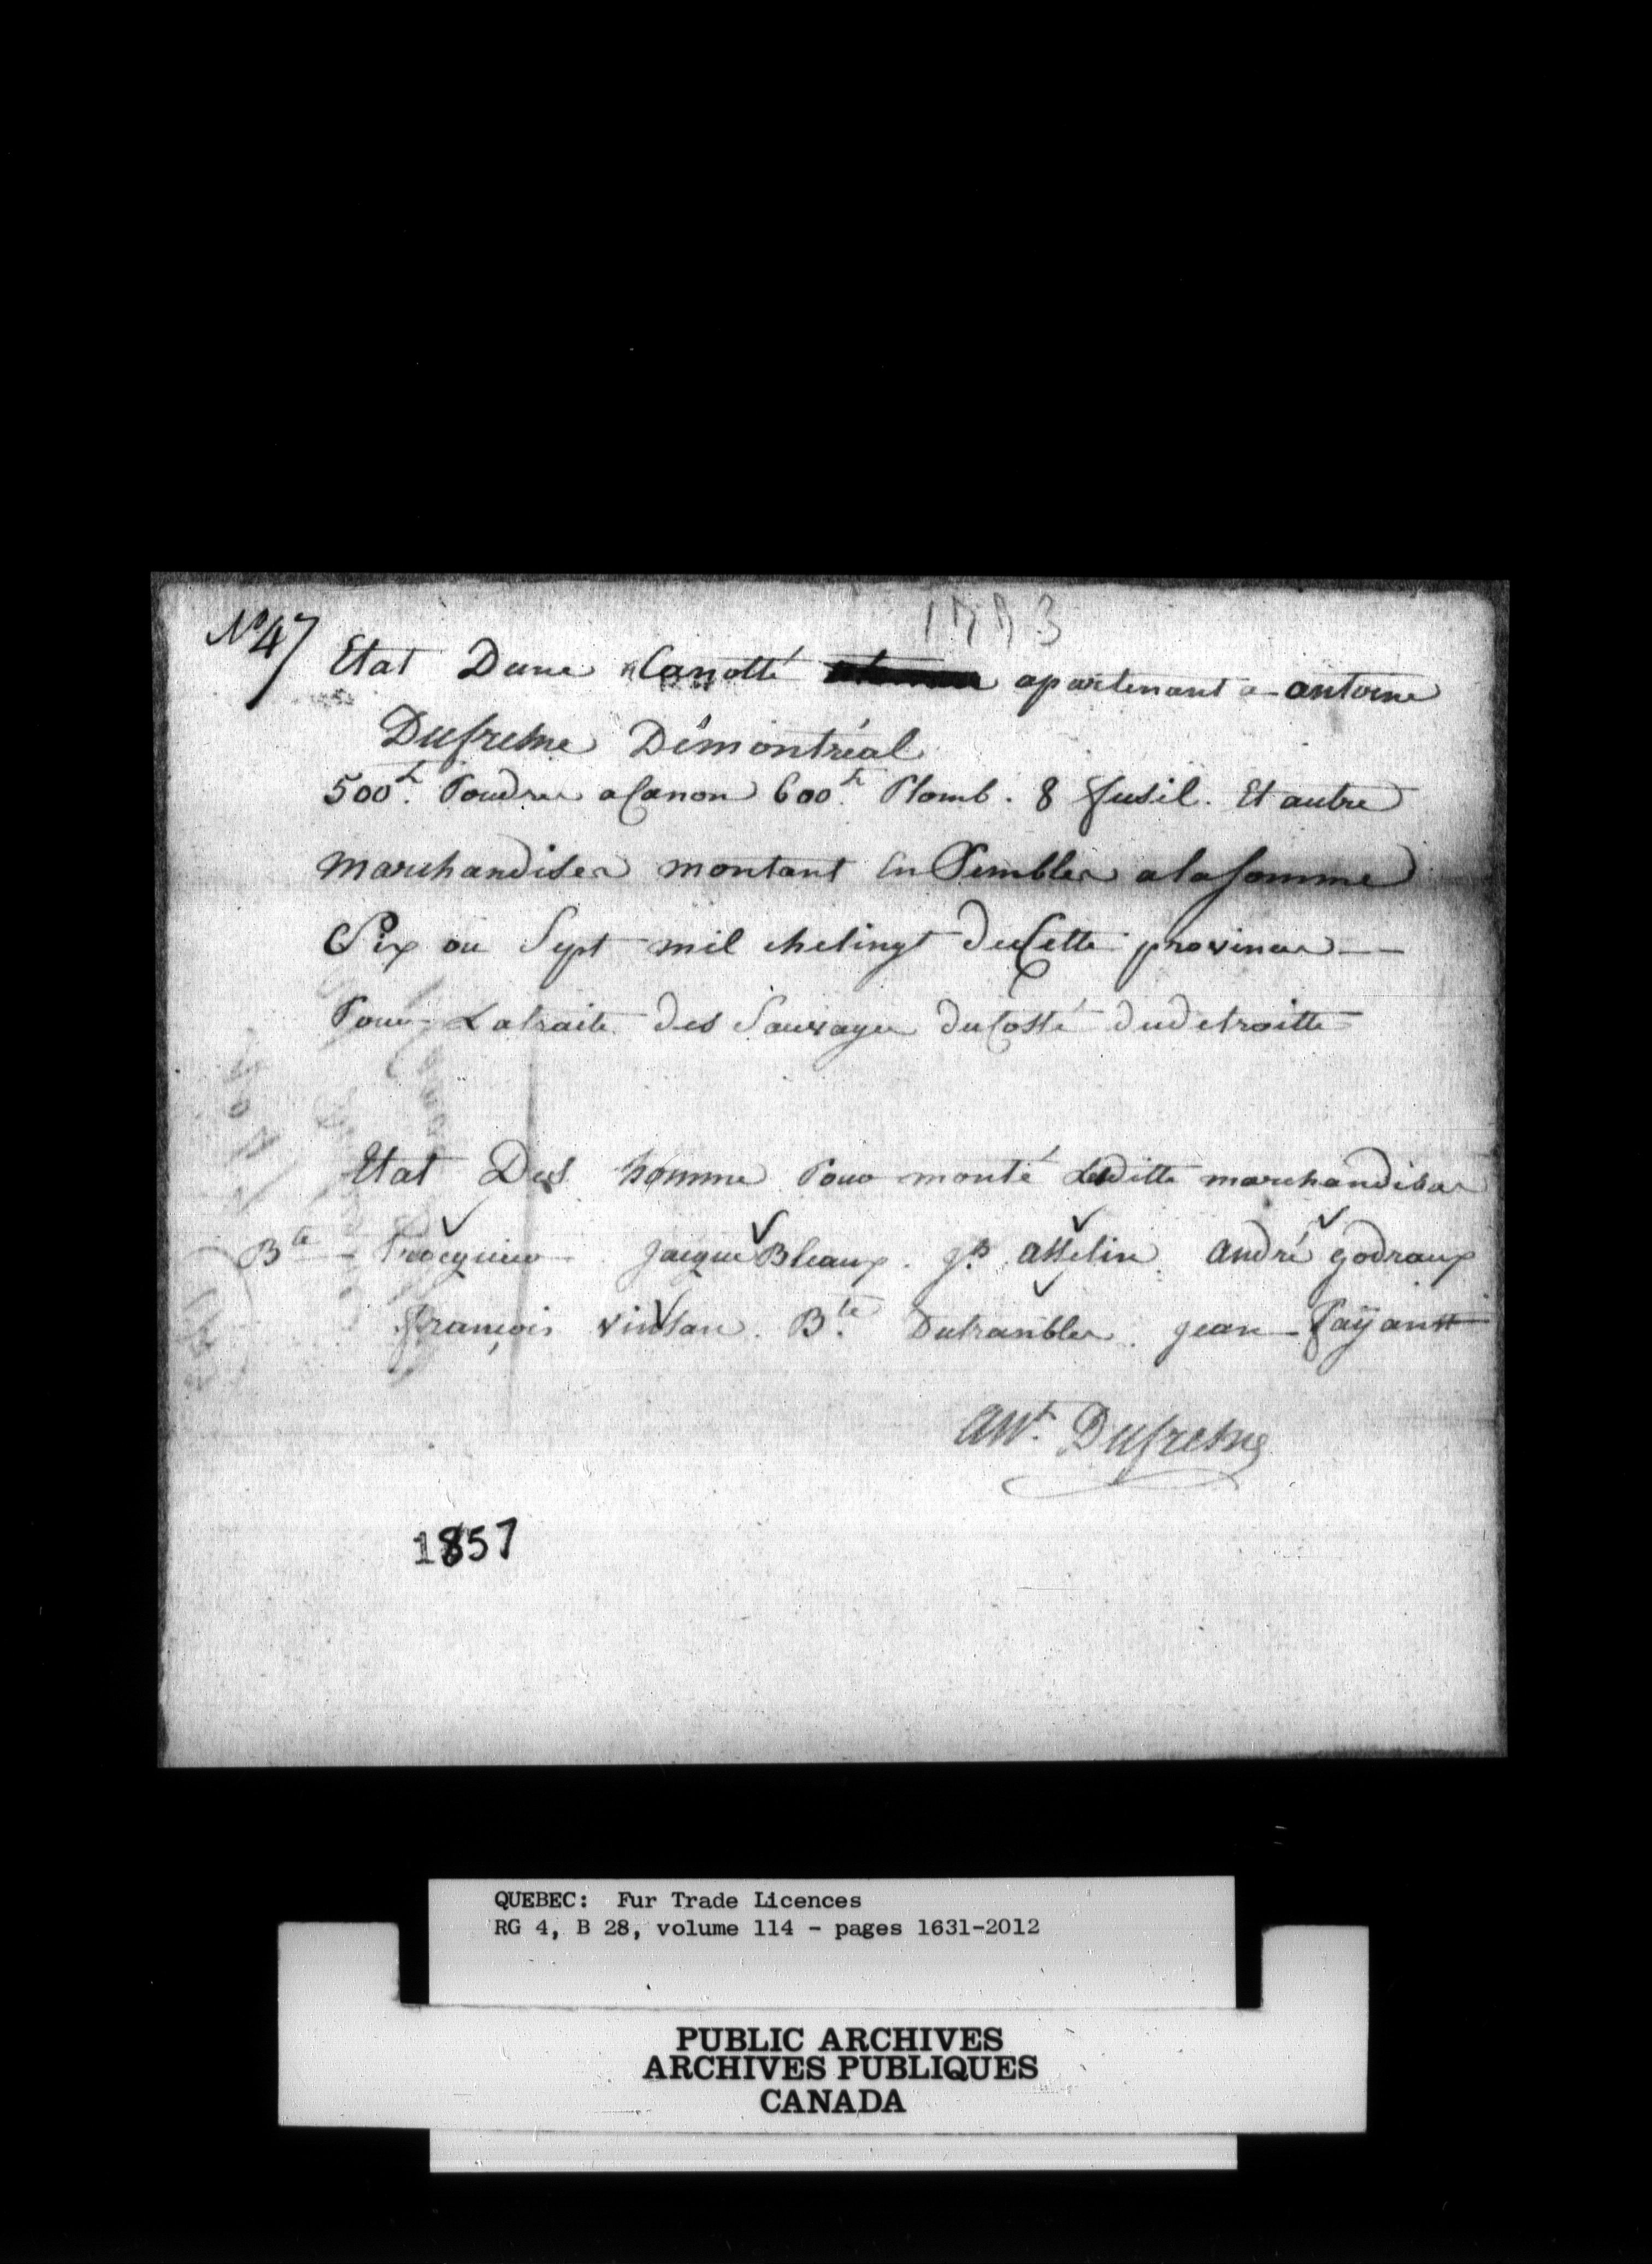 1773
N° 47
Etat Dune Canotté apartenant a antoine
Dufresne Démontréal
500 ᵗᵗ. Poudre a Canon 600 ᵗᵗ. Plomb. 8 fusil. Et autre
marchandises montant En Semble a la Somme
Six ou Sept mil chelingt de Cette province --
Pour La traite des Sauvages du Costé du detroitte
Etat Des homme Pour monté Laditte marchandise
Bte Jacque Bleaux. J.B. Asselin. André godraux
François vinsan. Bte. Dutranble. jean Payant
Ant. Dufresne
1857
QUEBEC: Fur Trade Licences
RG 4, B 28, volume 114 - pages 1631-2012
PUBLIC ARCHIVES
ARCHIVES PUBLIQUES
CANADA